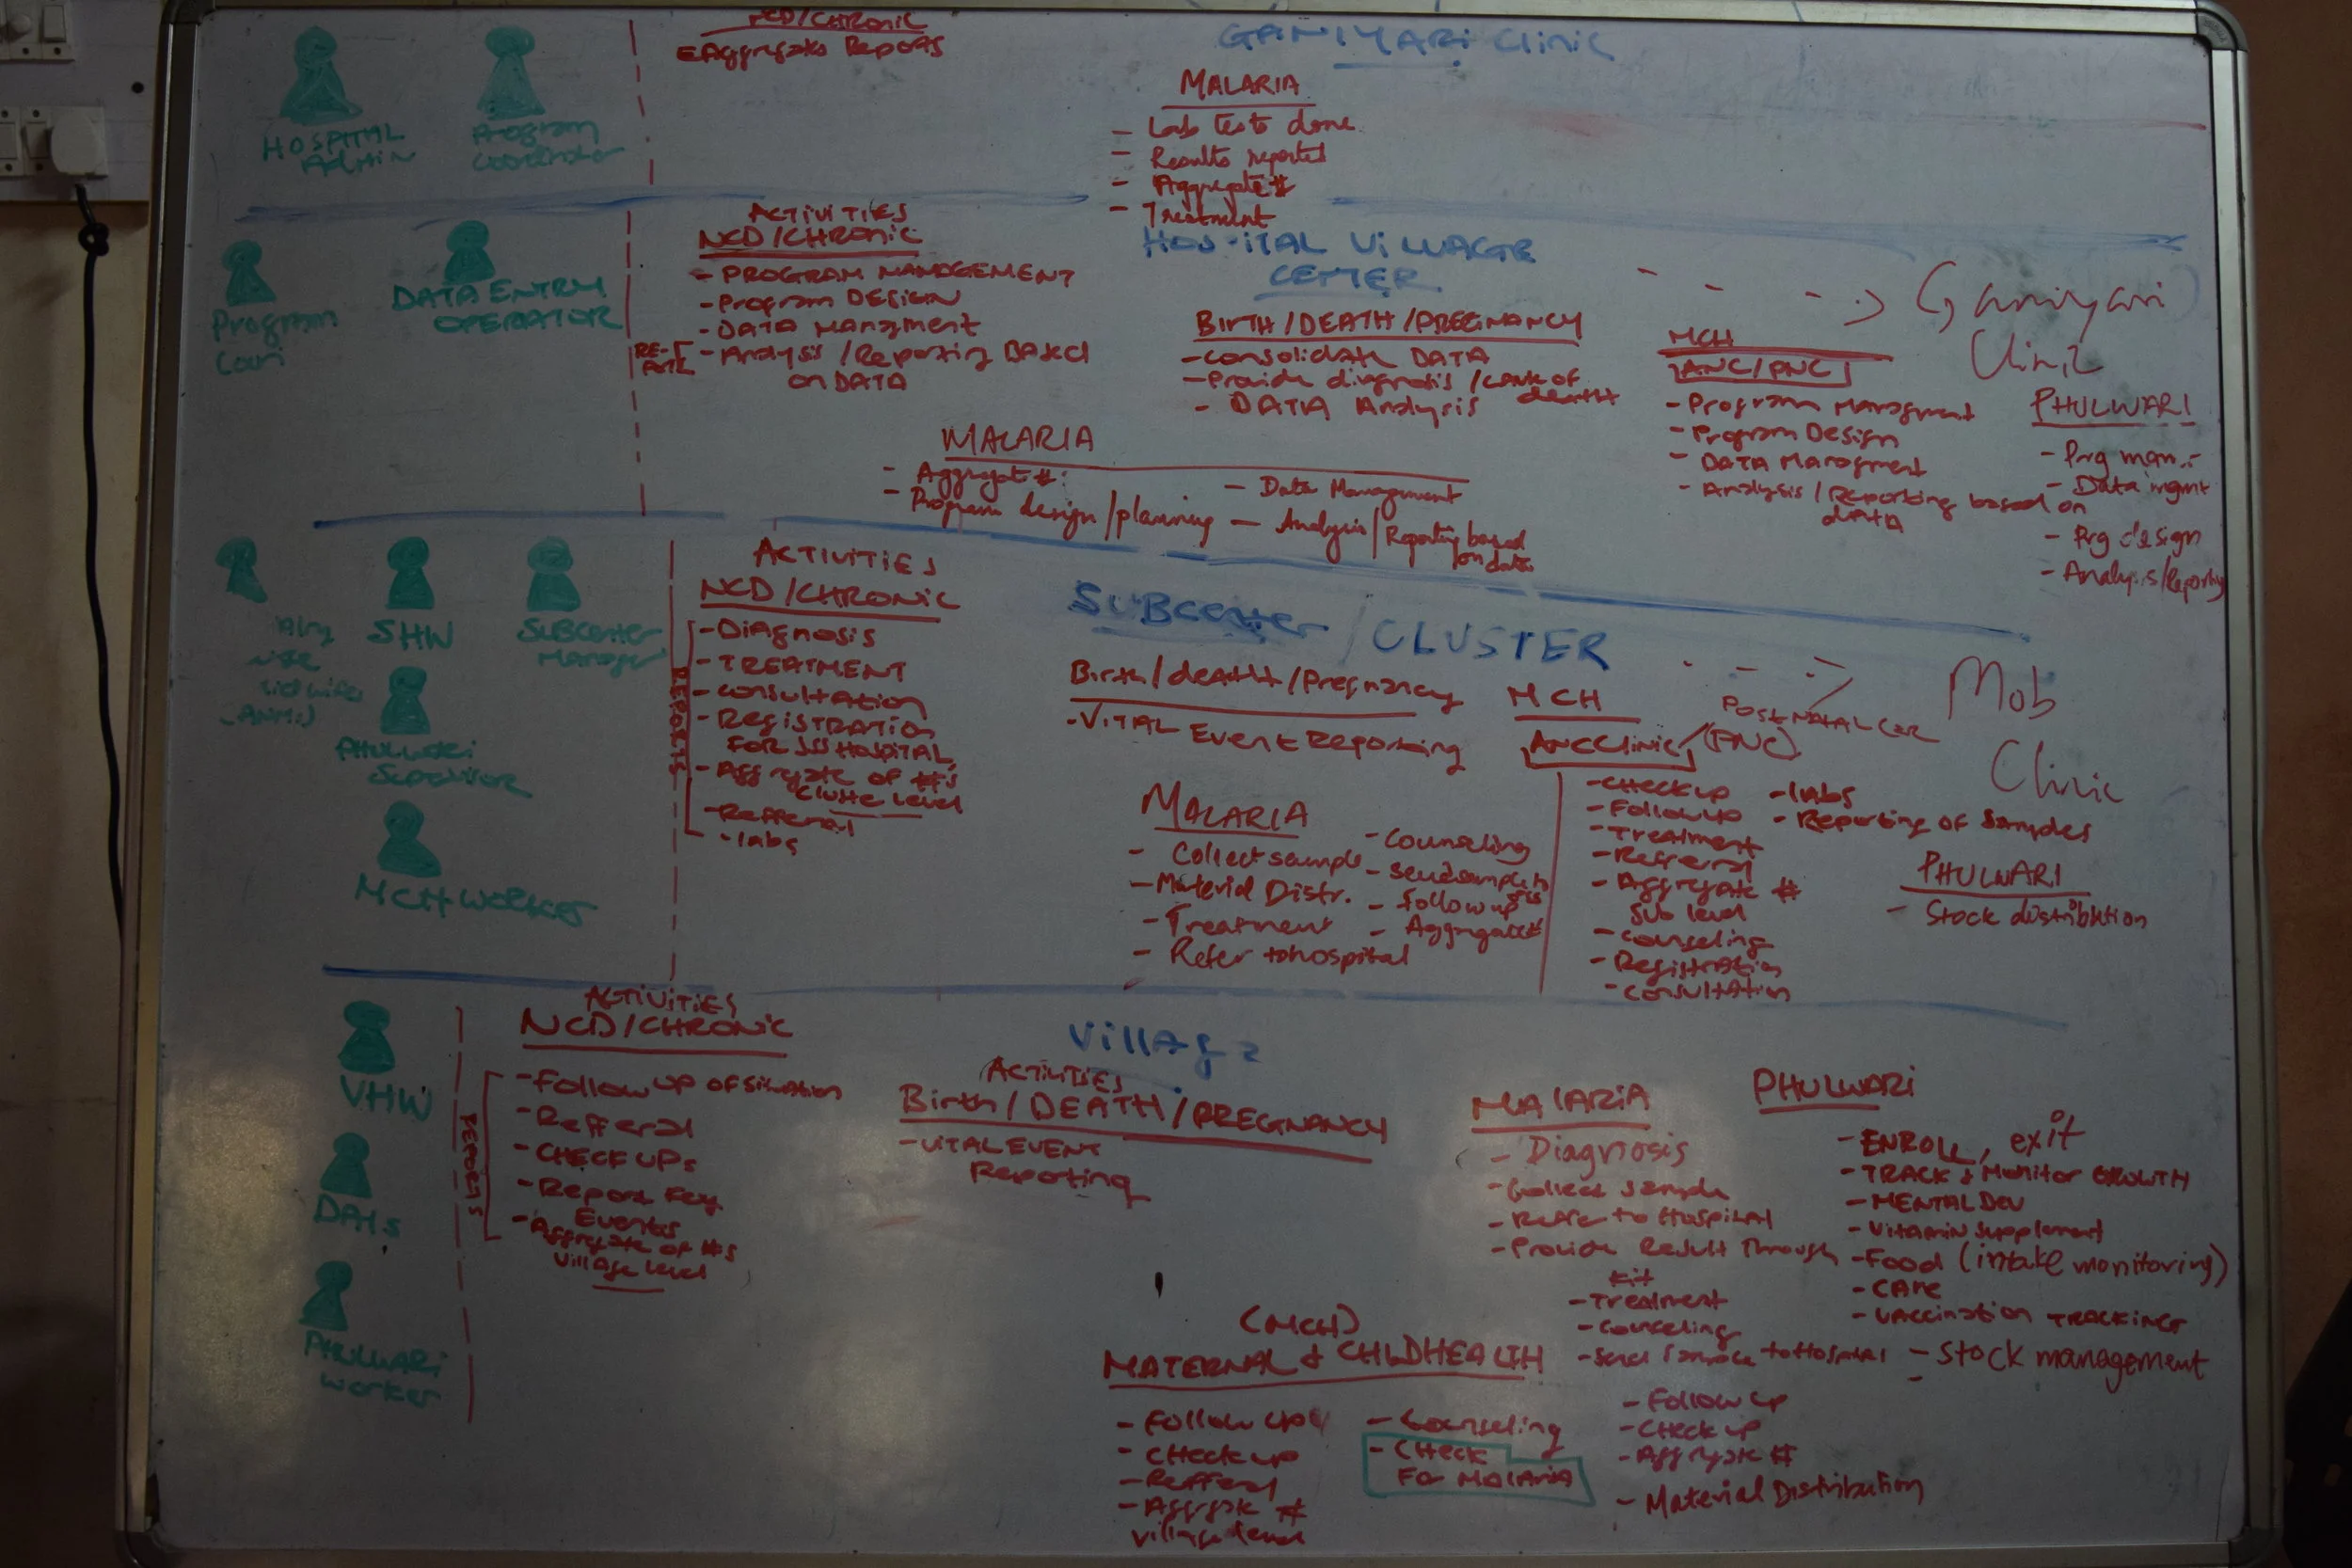 NCD/CHRONIC
Aggregate Reports
GANIYARI CLINIC
HOSPITAL
ADMIN
Program
Coordinator
MALARIA
- Lab tests done
- Results reported
- Aggregate #
- Treatment
Program
DATA ENTRY
OPERATOR
ACTIVITIES
NCD/CHRONIC
- PROGRAM MANAGEMENT
- Program DESIGN
- DATA Managment
- Analysis / Reporting BASED
on DATA
HOSPITAL VILLAGE
CENTER
BIRTH/DEATH/PREGNANCY
- Consolidate DATA
- Provide diagnosis / cause of
death
- DATA Analysis
- - -> Ganiyari
Clinic
MCH
ANC/PNC
- Program Managment
- Program Design
- DATA Managment
- Analysis / Reporting based on
data
PHULWARI
- Prg man.
- Data mgmt
- Prg design
- Analysis/Reporting
MALARIA
- Aggregate #:
- Program design/planning
- Data Management
- Analysis/Reporting based
on data
SHW
SUBCENTER
Manager
midwife
(ANM)
PHULWARI
Supervisor
MCH WORKER
ACTIVITIES
NCD/CHRONIC
REPORTS
- Diagnosis
- TREATMENT
- Consultation
- REGISTRATION
FOR JSS HOSPITAL
- Aggregate of #'s
Cluste Level
- Refferal
- labs
SUBCENTER / CLUSTER
- - -> Mob
Clinic
Birth/death/Pregnancy
- VITAL Event Reporting
MALARIA
- Collect sample
- Material Distr.
- Treatment
- Refer to hospital
- Counseling
- Send sample to
- follow up
- Aggregate #
MCH
ANC Clinic / (PNC)
POST NATAL Car
- Check up
- Follow up
- Treatment
- Referral
- Aggregate #
Sub level
- Counseling
- Registration
- Consultation
- labs
- Reporting of samples
PHULWARI
- Stock distribution
VHW
DAIs
PHULWARI
Worker
ACTIVITIES
NCD/CHRONIC
REPORTS
- Follow UP OF Situation
- Refferal
- CHECK UPs
- Report Key
Events
- Aggregate of #'s
Village level
Village
ACTIVITIES
Birth/DEATH/PREGNANCY
- VITAL EVENT
Reporting
MALARIA
- Diagnosis
- Collect Sample
- Refer to Hospital
- Provide Result Through
kit
- Treatment
- Counseling
- Send Sample to Hospital
- Follow up
- Check up
- Aggregate #
- Material Distribution
PHULWARI
- ENROLL, exit
- TRACK & Monitor GROWTH
- MENTAL DEV
- Vitamin Supplement
- Food (intake monitoring)
- CARE
- VACCINATION TRACKING
- Stock management
(MCH)
MATERNAL & CHILDHEALTH
- Follow up
- Check up
- Refferal
- Aggregate #
village level
- Counseling
- CHeck
For Malaria